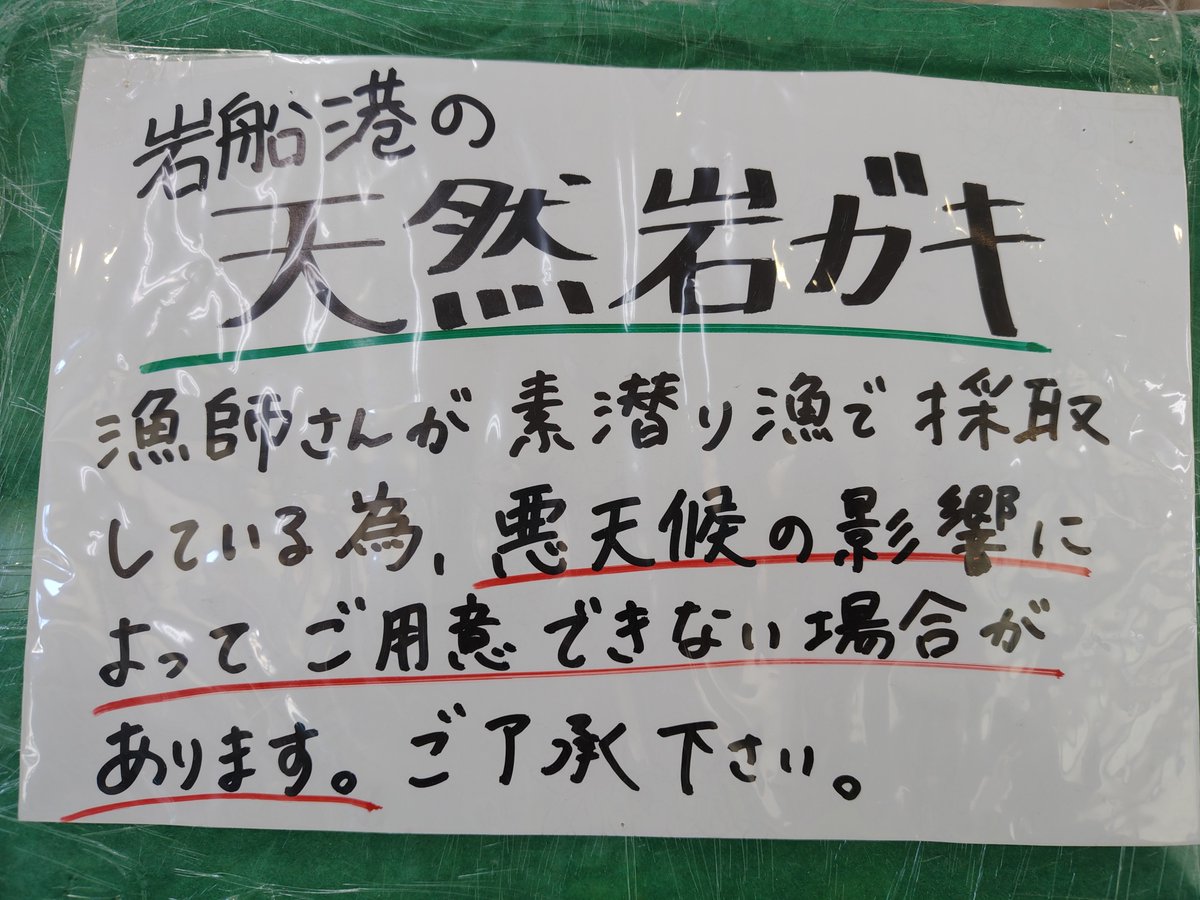 岩船港の
天然岩ガキ
漁師さんが素潜り漁で採取
している為、悪天候の影響に
よってご用意できない場合が
あります。ご了承下さい。